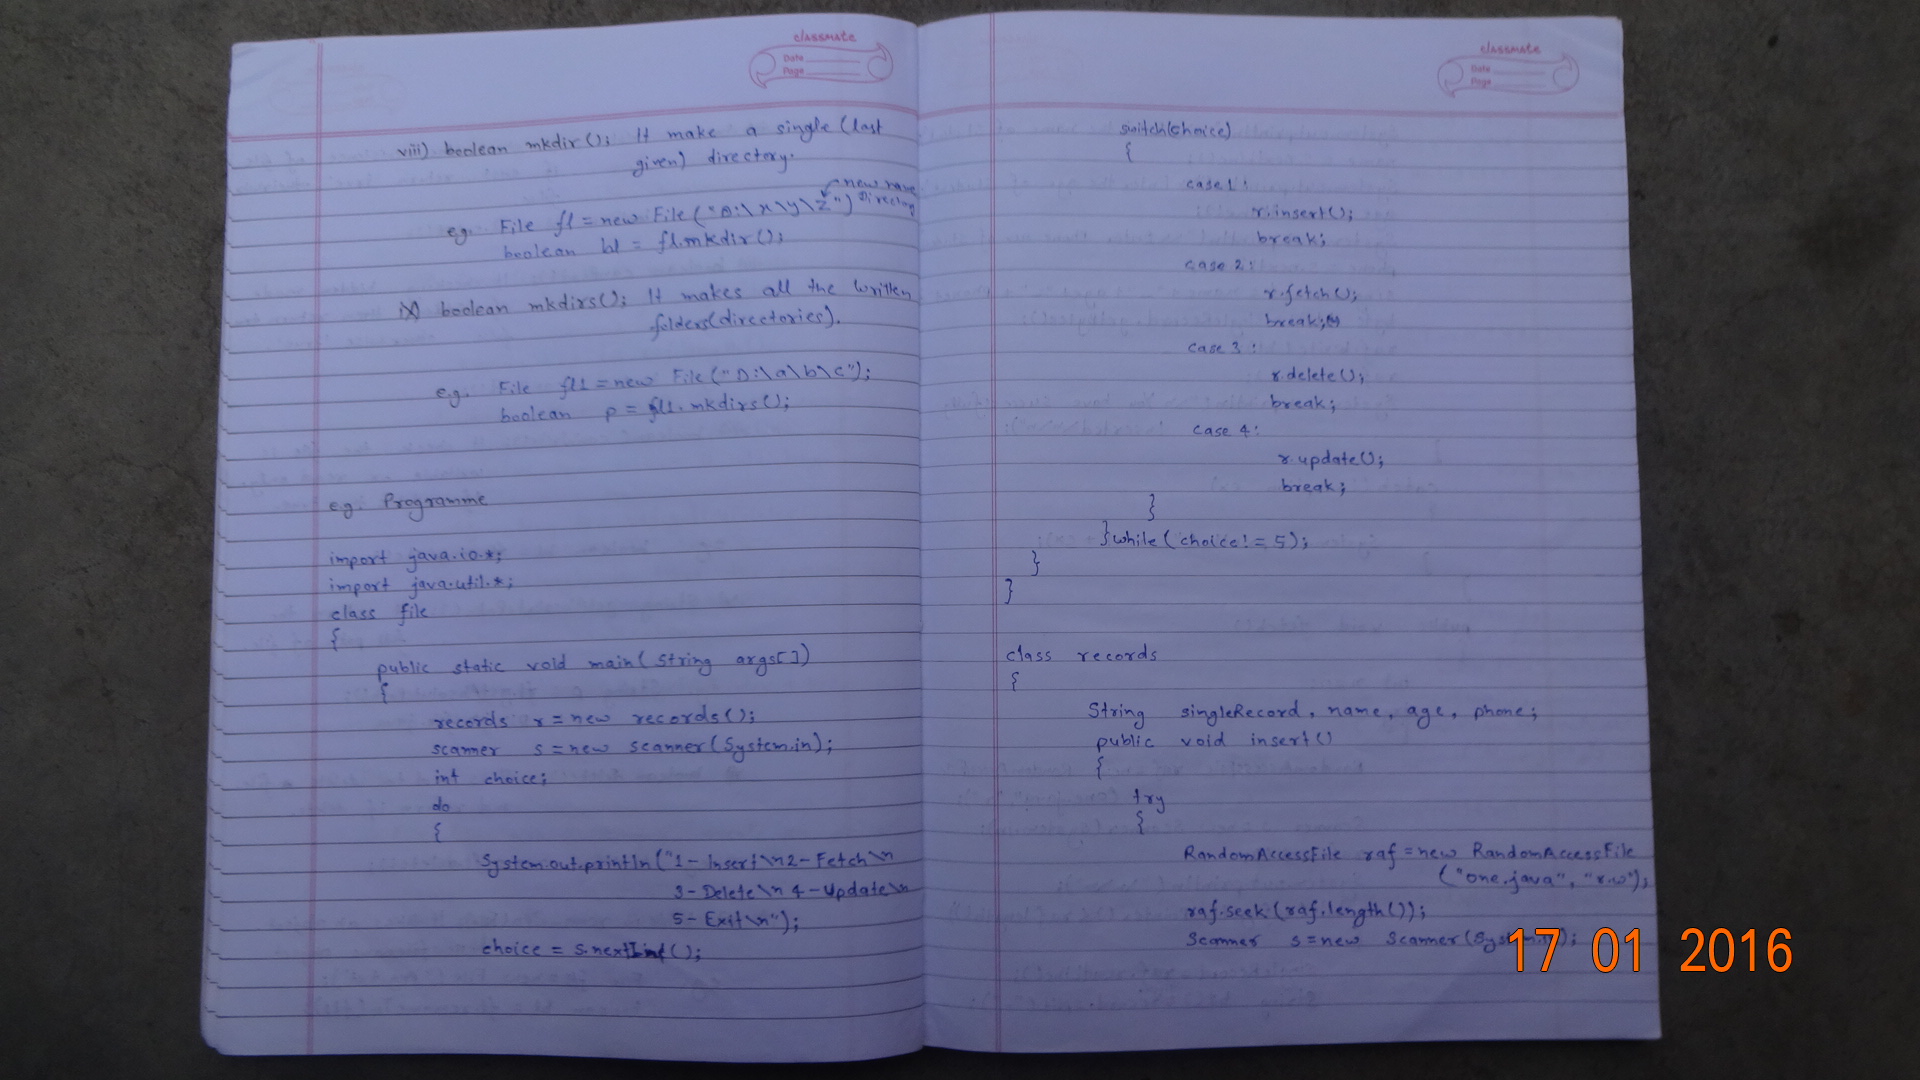 classmate
Date
Page
viii) boolean mkdir(); It make a single (last
given) directory.
new name
Directory
e.g. File f1 = new File ("D:\x\y\z")
boolean b1 = f1.mkdir();
ix) boolean mkdirs(); It makes all the written
folders(directories).
e.g. File fl1 = new File ("D:\a\b\c");
boolean p = fl1.mkdirs();
e.g. Programme
import java.io.*;
import java.util.*;
class file
{
public static void main( String args[])
{
records r = new records();
scanner s = new scanner(System.in);
int choice;
do
{
System.out.println("1- Insert\n2- Fetch\n
3- Delete\n 4- Update\n
5- Exit\n");
choice = s.nextInt();
classmate
Date
Page
switch(choice)
{
case 1:
r.insert();
break;
case 2:
r.fetch();
break;
case 3:
r.delete();
break;
case 4:
r.update();
break;
}
}while( choice! = 5);
}
}
class records
{
String singleRecord, name, age, phone;
public void insert()
{
try
{
RandomAccessFile raf = new RandomAccessFile
("one.java", "rw");
raf.seek(raf.length());
Scanner s = new Scanner(System.in);
17 01 2016